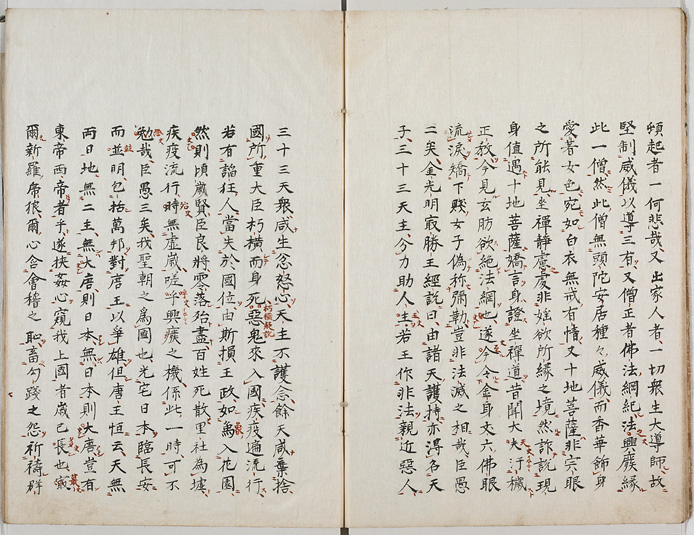 頓起者一何悲哉又出家人者一切衆生大導師故
堅制威儀以導三有又僧正者佛法綱紀法興廢縁
此一僧然此僧無頭陀安居種々威儀而香華飾身
愛著女色宛如白衣無戒有情又十地菩薩非宍眼
之所能見坐禪靜慮非婬欲所縁之境然詐説現
身値遇十地菩薩矯言身證坐禪道昔聞大夫汙穢
正教今見玄肪欲絶法綱也遂令金身丈六佛眼
流涙矯下賤女子偽称弥勒豈非法滅之相哉臣愚
二矣金光明寂勝王經説曰由諸天護持亦得名天
子三十三天主分力助人王若王作非法親近惡人
三十三天衆咸生忿怒心天主不護念餘天咸棄捨
國所重大臣朽横而身死惡鬼來入國疾疫遍流行
若有諂誑人當失於國位由斯損王政如為入花園
然則頃歳賢臣良將零落殆盡百姓死散里社為墟
疾疫流行時無虚歳嗟乎興癈之機係此一時可不
勉哉臣愚三矣我聖朝之為國也光宅日本臨長安
而並明包括萬邦對唐王以爭雄但唐王恒云天無
兩日地無二主無大唐則日本無日本則大唐豈有
東帝西帝者乎遂挾姧心窺我上國者歳已長也
爾新羅席狼爾心含會稽之恥畜勾踐之怨祈祷群